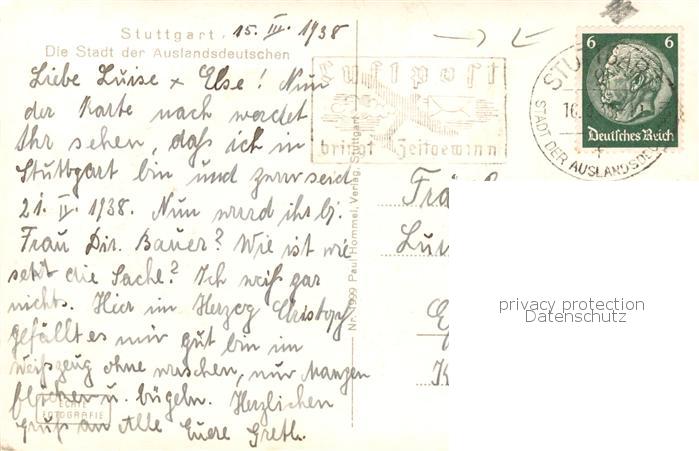 Stuttgart, 15. IV. 1938
Die Stadt der Auslandsdeutschen
Liebe Luise + Else! Nun
der Karte nach werdet
Ihr sehen, daß ich in
Stuttgart bin und zwar seid
21. IV. 1938. Nun wurd ihr bj.
Frau Dir. Bauer? Wie ist wie
setzt die Sache? Ich weiß gar
nichts. Hier im Herzog Christoph
gefällt es mir gut bin im
Weißzeug ohne waschen, nur Mangen
flicken u. bügeln. Herzlichen
Gruß an Alle Euere Gretl.
ECHTE
FOTOGRAFIE
Nr. 1099 Paul Hommel, Verlag, Stuttgart
Luftpost
bringt Zeitgewinn
STUTTGART
16.
STADT DER AUSLANDSDEU
6 6
Deutsches Reich
Frä
Lu
privacy protection
Datenschutz